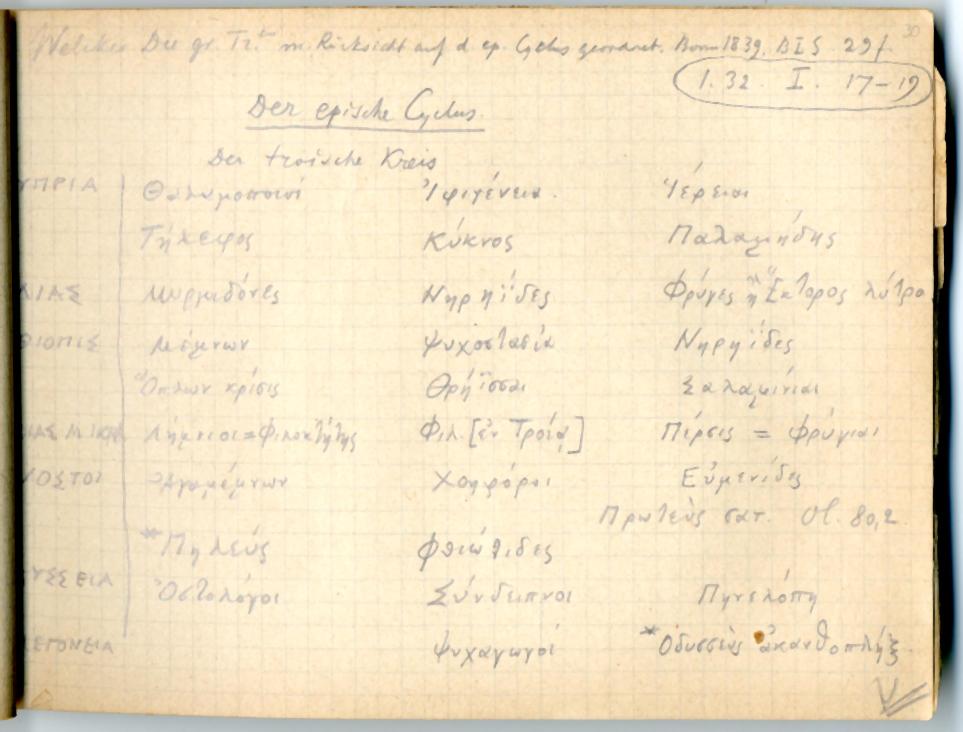 Welcker Die gr. Tr. m. Rücksicht auf d. ep. Cyclus geordnet. Bonn 1839. B I S. 29 f.
30
1.32 I. 17–19
Der epische Cyclus.
Der troische Kreis
ΥΠΡΙΑ Θαλαμοποιοί Ἰφιγένεια. Ἱέρειαι
Τήλεφος Κύκνος Παλαμήδης
ΛΙΑΣ Μυρμιδόνες Νηρηΐδες Φρύγες ἢ Ἕκτορος λύτρα
ΘΙΟΠΙΣ Μέμνων Ψυχοστασία Νηρηΐδες
Ὅπλων κρίσις Θρῄϊσσαι Σαλαμίνιαι
ΙΑΣ ΜΙΚΡ Λήμνιοι = Φιλοκτήτης Φιλ. [ἐν Τροίᾳ] Πέρσις = Φρύγιαι
ΝΟΣΤΟΙ Ἀγαμέμνων Χοηφόροι Εὐμενίδες
Πρωτεὺς σατ. Ol. 80,2
*Πηλεύς Φθιώτιδες
ΥΣΣΕΙΑ Ὀστολόγοι Σύνδειπνοι Πηνελόπη
ΕΓΟΝΕΙΑ Ψυχαγωγοί *Ὀδυσσεὺς ἀκανθοπλήξ